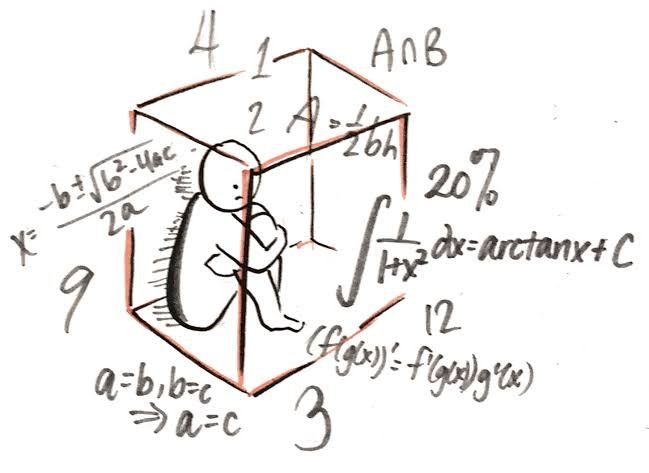 4
1
A∩B
2
A = 1/2 bh
x = (-b ± √(b²-4ac))/2a
20%
∫ 1/(1+x²) dx = arctanx + C
9
12
(f(g(x))' = f'(g(x))g'(x)
a=b, b=c
⇒ a=c
3